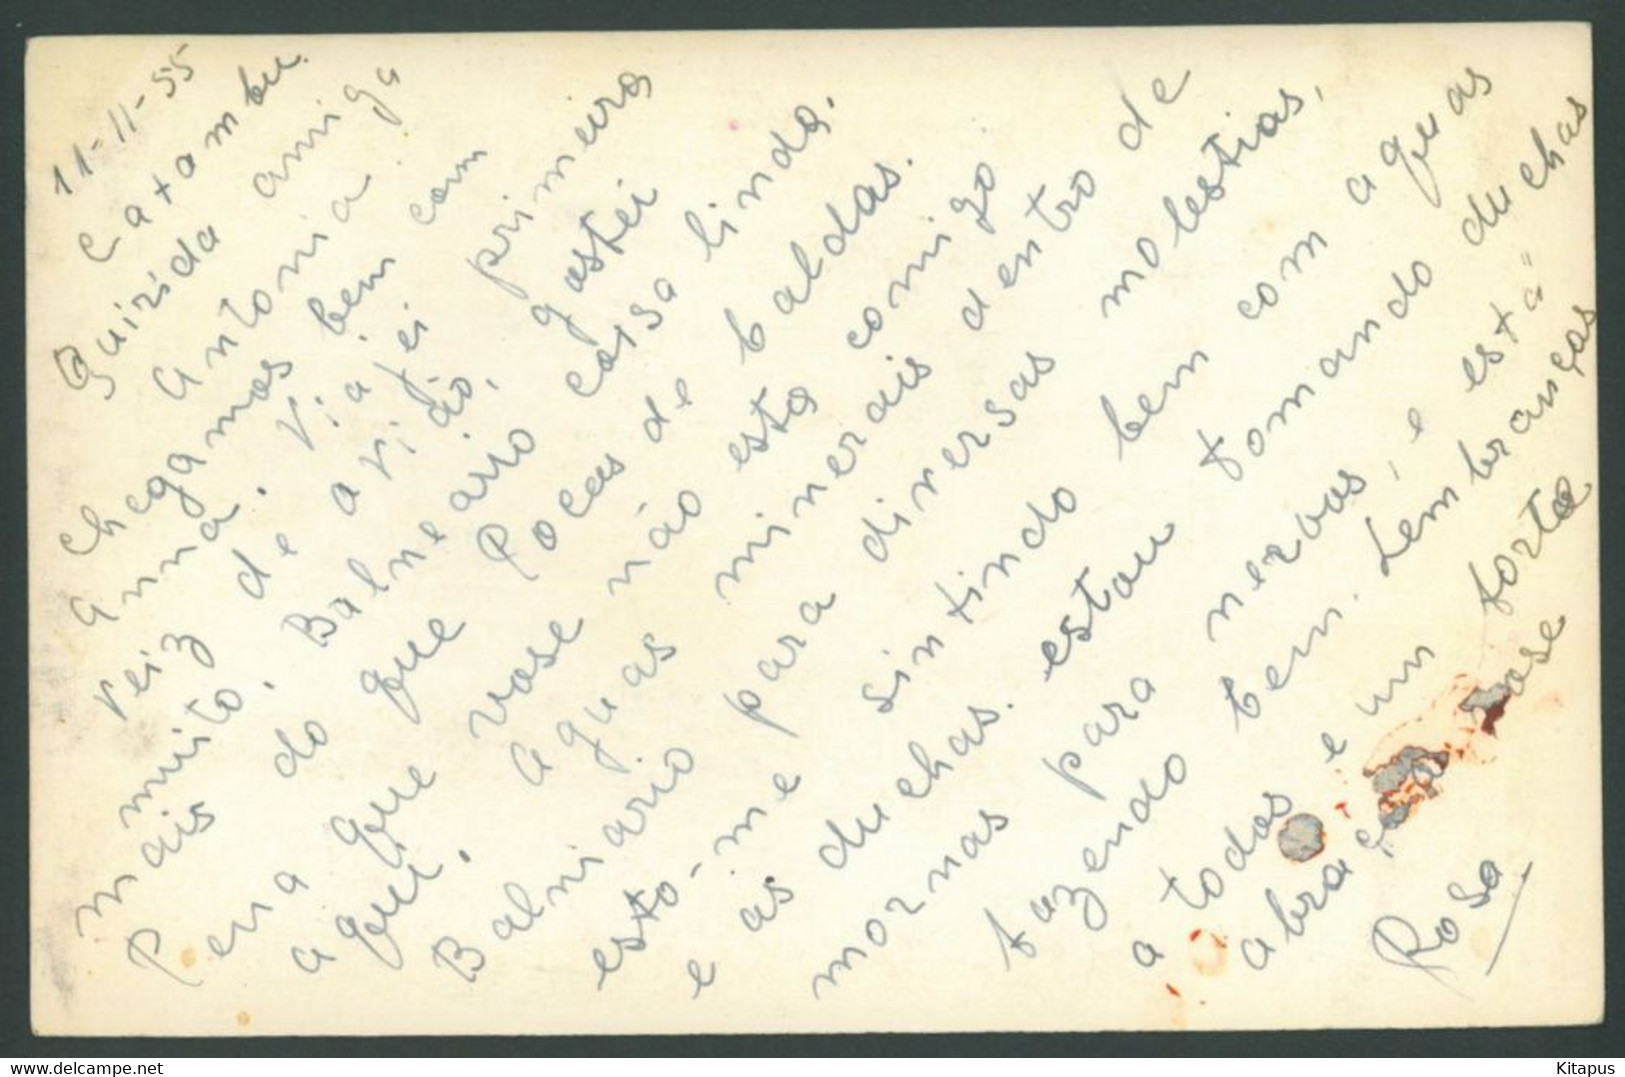 11-11-55
Catambu.
Quirida amiga
Antonia.
Chegamos bem com
Anna. Viajei primeira
veiz de avião, gostei
muito. Balneario coisa linda.
mais do que Pocas de Caldas.
Pena que vose não esta comigo
aqui. Aguas minerais dentro de
Balniario para diversas molestias,
esto-me sintindo bem com aguas
e as duchas. estou tomando duchas
mornas para nervos, e esta=
fazendo bem. Lembranças
a todos e um forte
abraço a vose
Rosa
Kitapus
delcampe.net